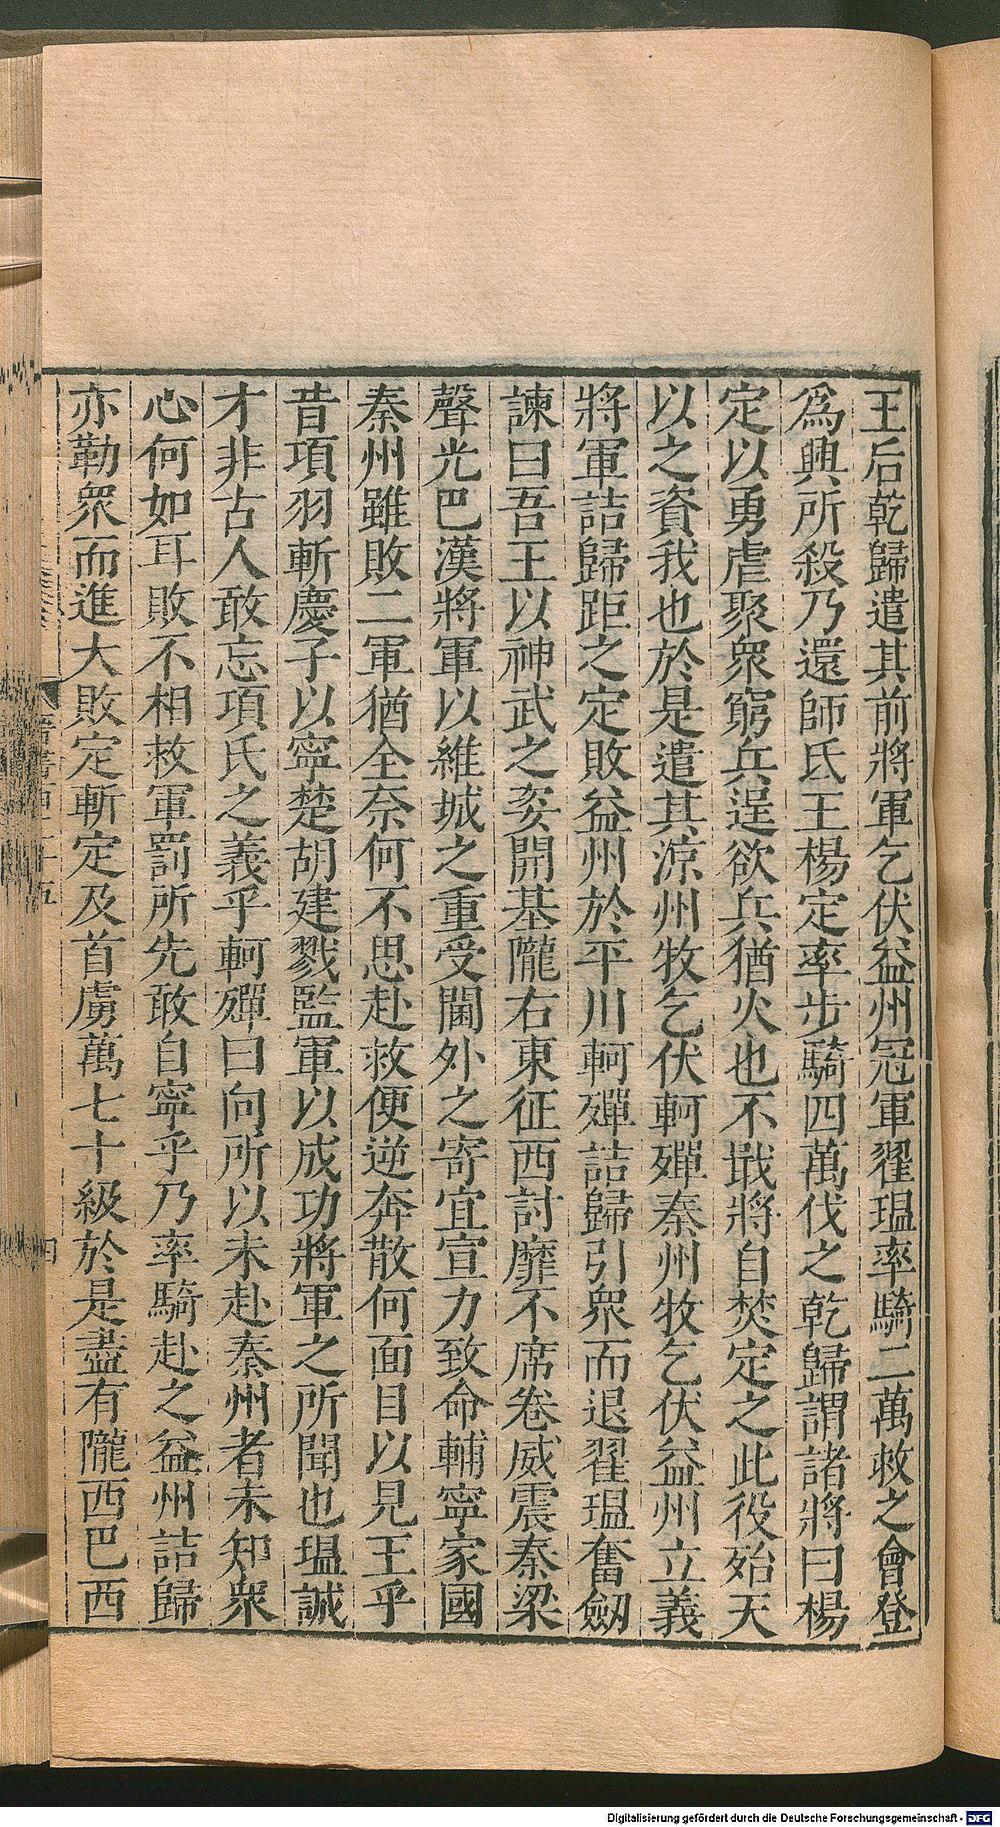 王后乾歸遣其前將軍乞伏益州冠軍翟瑥率騎二萬救之會登
爲興所殺乃還師氐王楊定率步騎四萬伐之乾歸謂諸將曰楊
定以勇虐聚衆窮兵逞欲兵猶火也不戢將自焚定之此役殆天
以之資我也於是遣其涼州牧乞伏軻殫秦州牧乞伏益州立義
將軍詰歸距之定敗益州於平川軻殫詰歸引衆而退翟瑥奮劒
諫曰吾王以神武之姿開基隴右東征西討靡不席卷威震秦梁
聲光巴漢將軍以維城之重受閫外之寄宜宣力致命輔寧家國
秦州雖敗二軍猶全奈何不思赴救便逆奔散何面目以見王乎
昔項羽斬慶子以寧楚胡建戮監軍以成功將軍之所聞也瑥誠
才非古人敢忘項氏之義乎軻殫曰向所以未赴秦州者未知衆
心何如耳敗不相救軍罰所先敢自寧乎乃率騎赴之益州詰歸
亦勒衆而進大敗定斬定及首虜萬七十級於是盡有隴西巴西
Digitalisierung gefördert durch die Deutsche Forschungsgemeinschaft - DFG